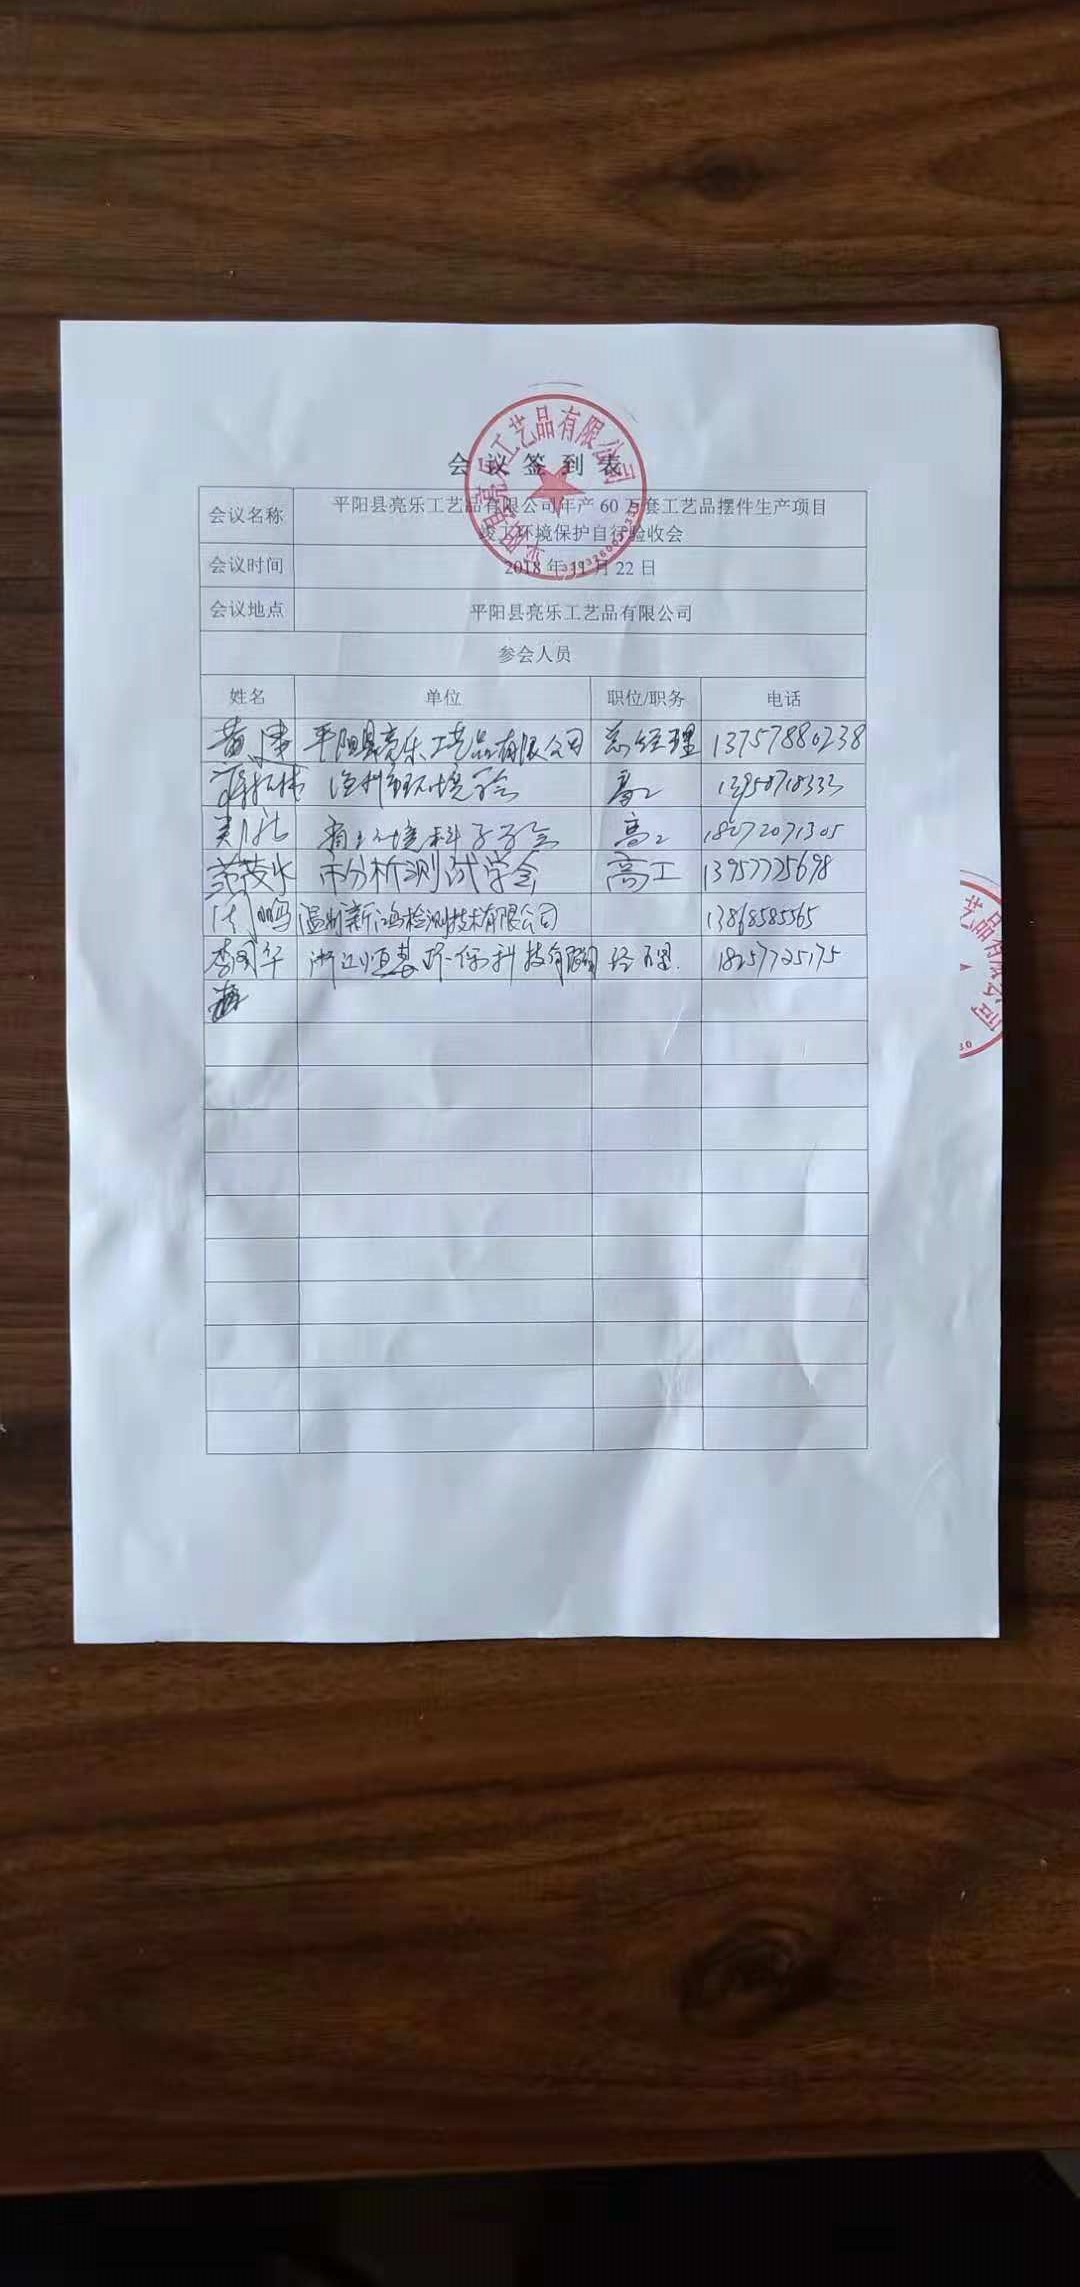 会议签到表
会议名称 平阳县亮乐工艺品有限公司年产 60 万套工艺品摆件生产项目
竣工环境保护自行验收会
会议时间 2018 年 11 月 22 日
会议地点 平阳县亮乐工艺品有限公司
参会人员
姓名 单位 职位/职务 电话
黄 平阳县亮乐工艺品有限公司 总经理 13757880238
高工
高工 18072071305
市分析测试学会 高工 13957725698
鸣 温州新鸿检测技术有限公司 13868585565
李 浙江恒基环保科技有限公司 经理 18257725175
工艺品有限公司
艺品有限公司